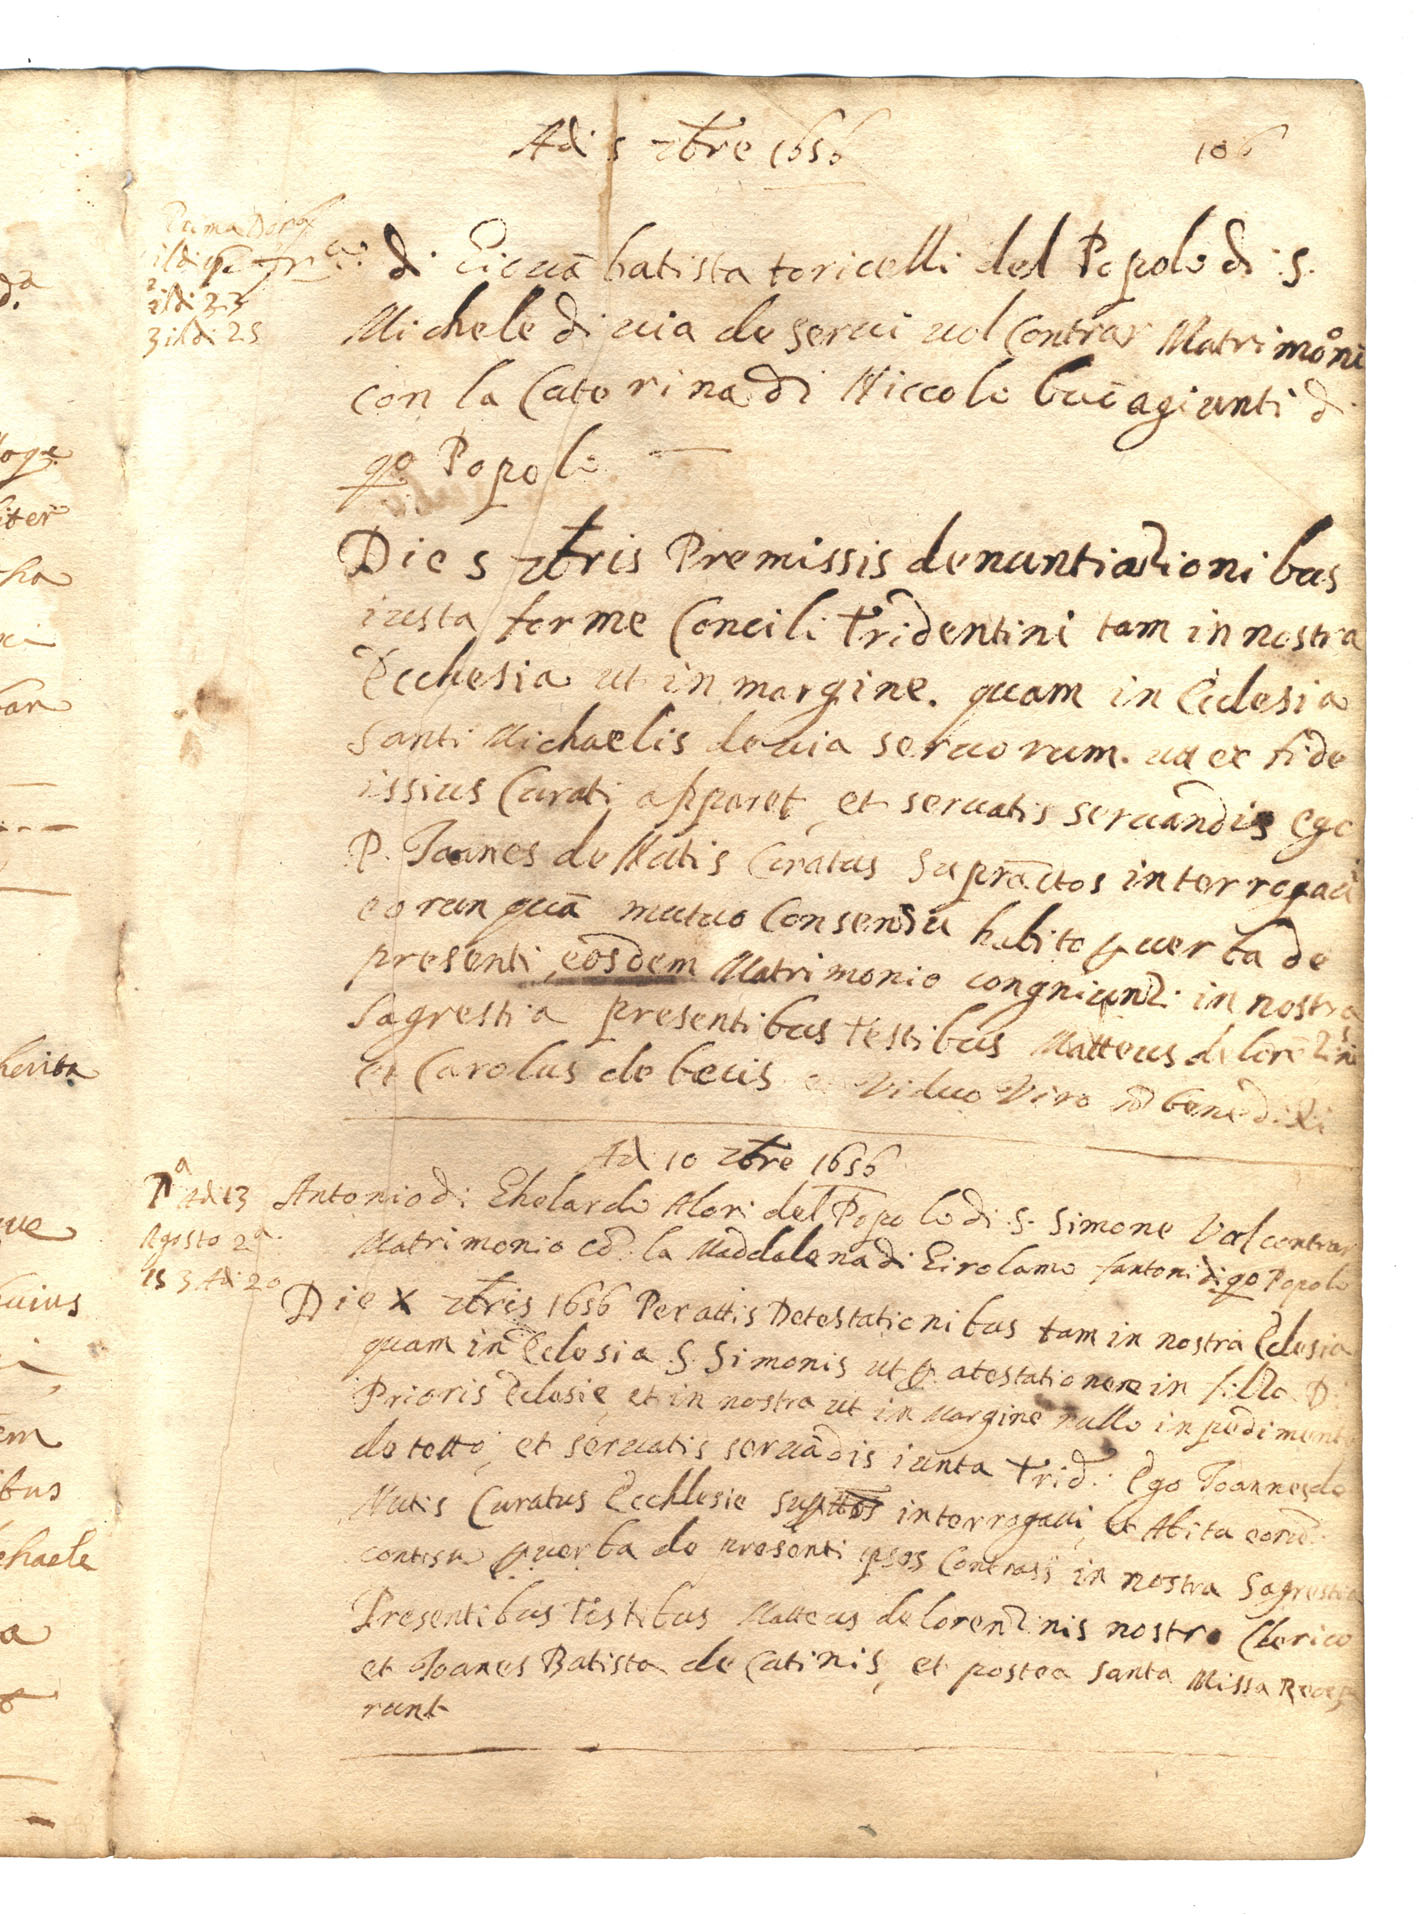 Adi 5 7bre 1656
106
Prima Den
il di
2 il di 23
3 il di 25
di Giouā batista toricelli del Popolo di S.
Michele di uia de serui uol Contrar Matrimōni
con la Caterina di Niccolo bucagiunti di
q.o Popolo
Die 5 7bris Premissis denuntiationibus
iusta forme Concili tridentini tam in nostra
Ecchesia ut in margine. quam in Eclesia
Santi Michaelis de uia seruorum. ut ex fide
issius Curati apparet, et seruatis seruandis ego
P. Joanes de Mutis Curatus supractos interrogaui
eorunquā mutuo Consensu habito p uerba de
presenti, eosdem Matrimonio congniunsi in nostra
Sagrestia presentibus testibus Matteus de lorēzinis
et Carolus de becis Viduo Viro nō benedixi
Adi 10 7bre 1656
Pa Adi 13
Agosto 2a
15 3. Adi 20
Antonio di Ghelardo Mori del Popolo di S. Simone Vol contrar
Matrimonio cō la Maddalena di Girolamo santoni di q.o Popolo
Die X 7bris 1656 Perattis Detestationibus tam in nostra Eclesia
quam in Eclesia S. Simonis ut p. atestationem in filza D
Prioris Eclesie, et in nostra ut in Margine nullo inpedimento
detetto, et seruatis seruādis iunta trid. Ego Joannes de
Mutis Curatus Ecchlesie suprttos interrogaui, et Abita eorud.
contesu p uerba de presenti ipsos Contrassi in nostra Sagrestia
Presentibus testibus Matteus de lorenzinis nostro Clerico
et Joanes Batista de Catinis, et postea santa Missa Recep
runt